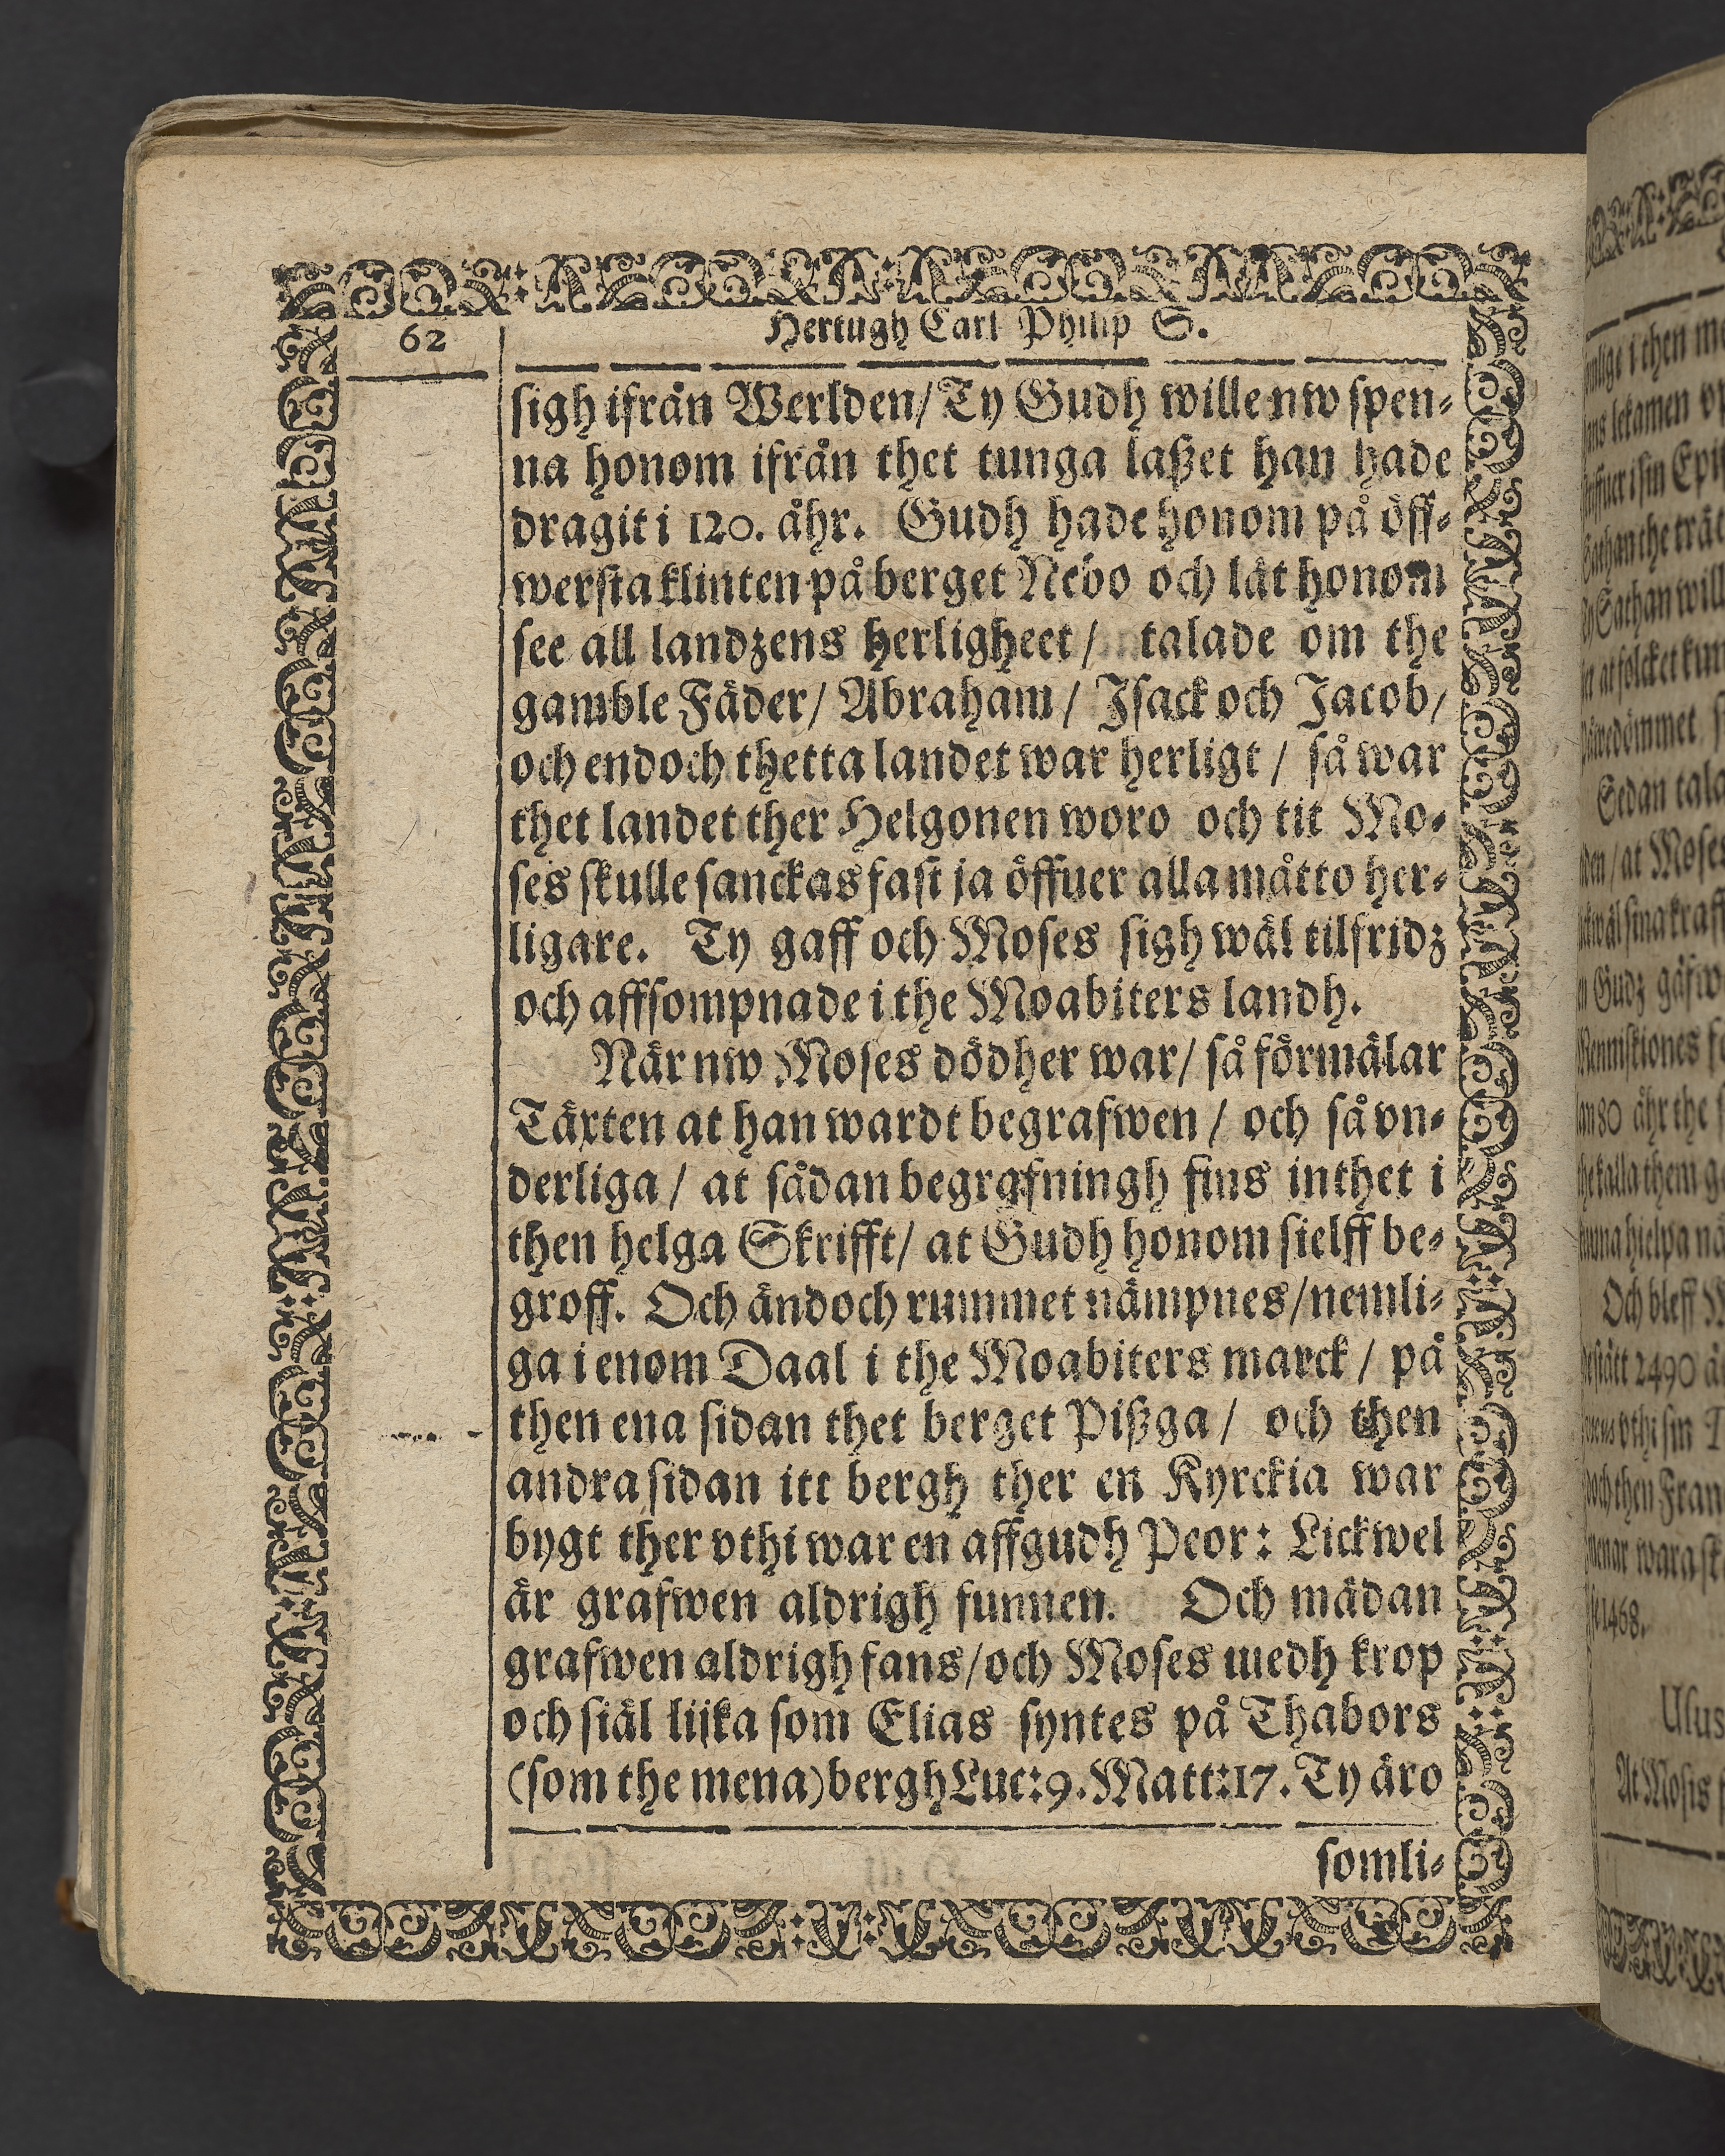 62
Hertugh Carl Philip S.
sigh ifrån Werlden/ Ty Gudh wille nw spen-
na honom ifrån thet tunga laßet han hade
dragit i 120. åhr. Gudh hade honom på öff-
wersta klinten på berget Nebo och lät honom
see all landzens herligheet/ talade om the
gamble Fäder/ Abraham/ Isack och Jacob/
och endoch thetta landet war herligt/ så war
thet landet ther Helgonen woro och tit Mo-
ses skulle sanckas fast ja öffuer alla måtto her-
ligare. Ty gaff och Moses sigh wäl tilfridz
och affsompnade i the Moabiters landh.
När nw Moses dödher war/ så förmälar
Täxten at han wardt begrafwen/ och så vn-
derliga/ at sådan begrafningh fins inthet i
then helga Skrifft/ at Gudh honom sielff be-
groff. Och ändoch rummet nämpnes/ nemli-
ga i enom Daal i the Moabiters marck/ på
then ena sidan thet berget Pißga/ och then
andra sidan itt bergh ther en Kyrckia war
bygt ther vthi war en affgudh Peor: Lickwel
är grafwen aldrigh funnen. Och mädan
grafwen aldrigh fans/ och Moses medh krop
och siäl lijka som Elias syntes på Thabors
(som the mena) bergh Luc: 9. Matt: 17. Ty äro
somli-